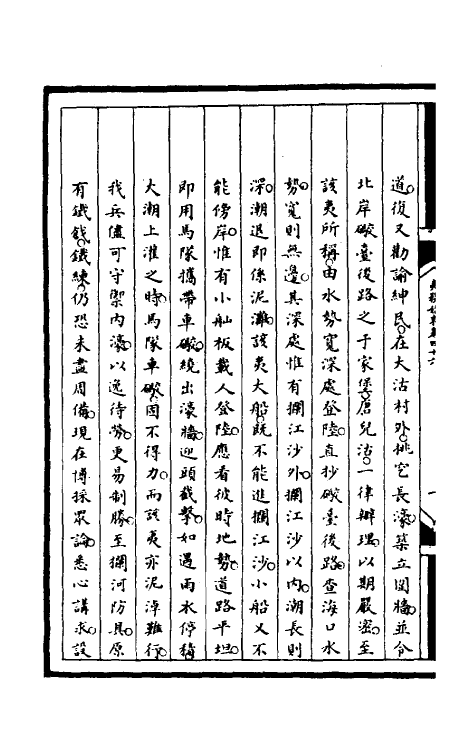 道復又勸諭紳民在大沽村外挑乞長濠築立圍牆並令
北岸礮臺後路之于家堡唐兒沽一律辦理以期嚴密至
該夷所稱由水勢寬深處登陸直抄礮臺後路查海口水
勢寬則無邊其深處惟有攔江沙外攔江沙以內潮長則
深潮退即係泥灘該夷大船既不能進攔江沙小船又不
能傍岸惟有小舢板載人登陸應看彼時地勢道路平坦
即用馬隊攜帶車礮繞出濠牆迎頭截擊如遇雨水停積
大潮上灌之時馬隊車礮固不得力而該夷亦泥濘難行
我兵儘可守禦內濠以逸待勞更易制勝至攔河防具原
有鐵鍁鐵練仍恐未盡周備現在博採眾論悉心講求設